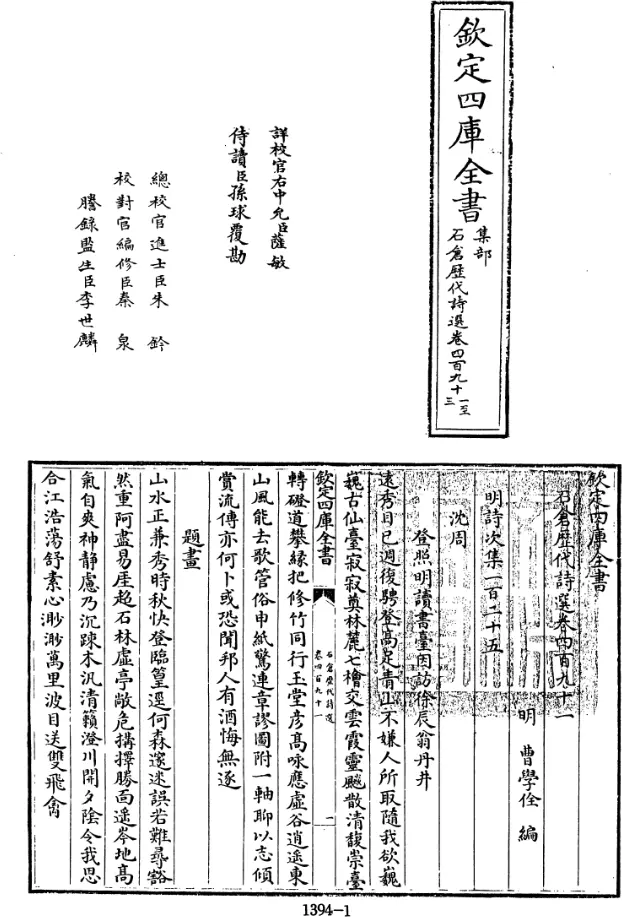 欽定四庫全書
集部
石倉歷代詩選卷四百九十一至三
詳校官右中允臣薩敏
侍讀臣孫球覆勘
總校官進士臣朱鈐
校對官編修臣秦泉
謄錄監生臣李世麟
欽定四庫全書
石倉歷代詩選卷四百九十一
明 曹學佺 編
明詩次集一百二十五
沈周
登照明讀書臺因訪徐辰翁丹井
遠秀目已週復騁登高足青山不嫌人所取隨我欲巍
巍古仙臺寂寂奠林麓七檜交雲霞靈飈散清馥崇臺
欽定四庫全書
石倉歷代詩選
卷四百九十一
一
轉磴道攀縁把修竹同行玉堂彦高咏應虛谷逍遥東
山風能去歌管俗申紙驚連章謬圖附一軸聊以志傾
賞流傳亦何卜或恐聞邦人有酒悔無逐
題畫
山水正兼秀時秋快登臨篁逕何森邃迷誤若難尋豁
然重阿盡易崖趍石林虛亭敞危搆擇勝面遥岑地高
氣自爽神静慮乃沉踈木汎清籟澄川開夕陰令我思
合江浩蕩舒素心渺渺萬里波目送雙飛禽
1394-1